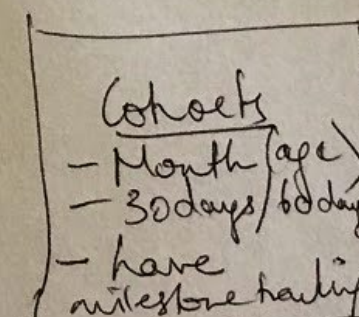 Cohorts
- Month (age)
- 30days/60day
- have
milestone trackin